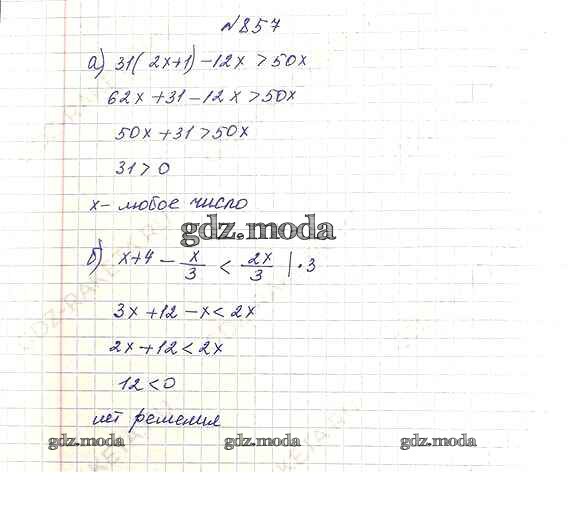 №857
а) 31(2x+1)-12x>50x
62x+31-12x>50x
50x+31>50x
31>0
x- любое число
gdz.moda
б) x+4 - x/3 < 2x/3 |·3
3x+12-x<2x
2x+12<2x
12<0
нет решения
gdz.moda gdz.moda gdz.moda